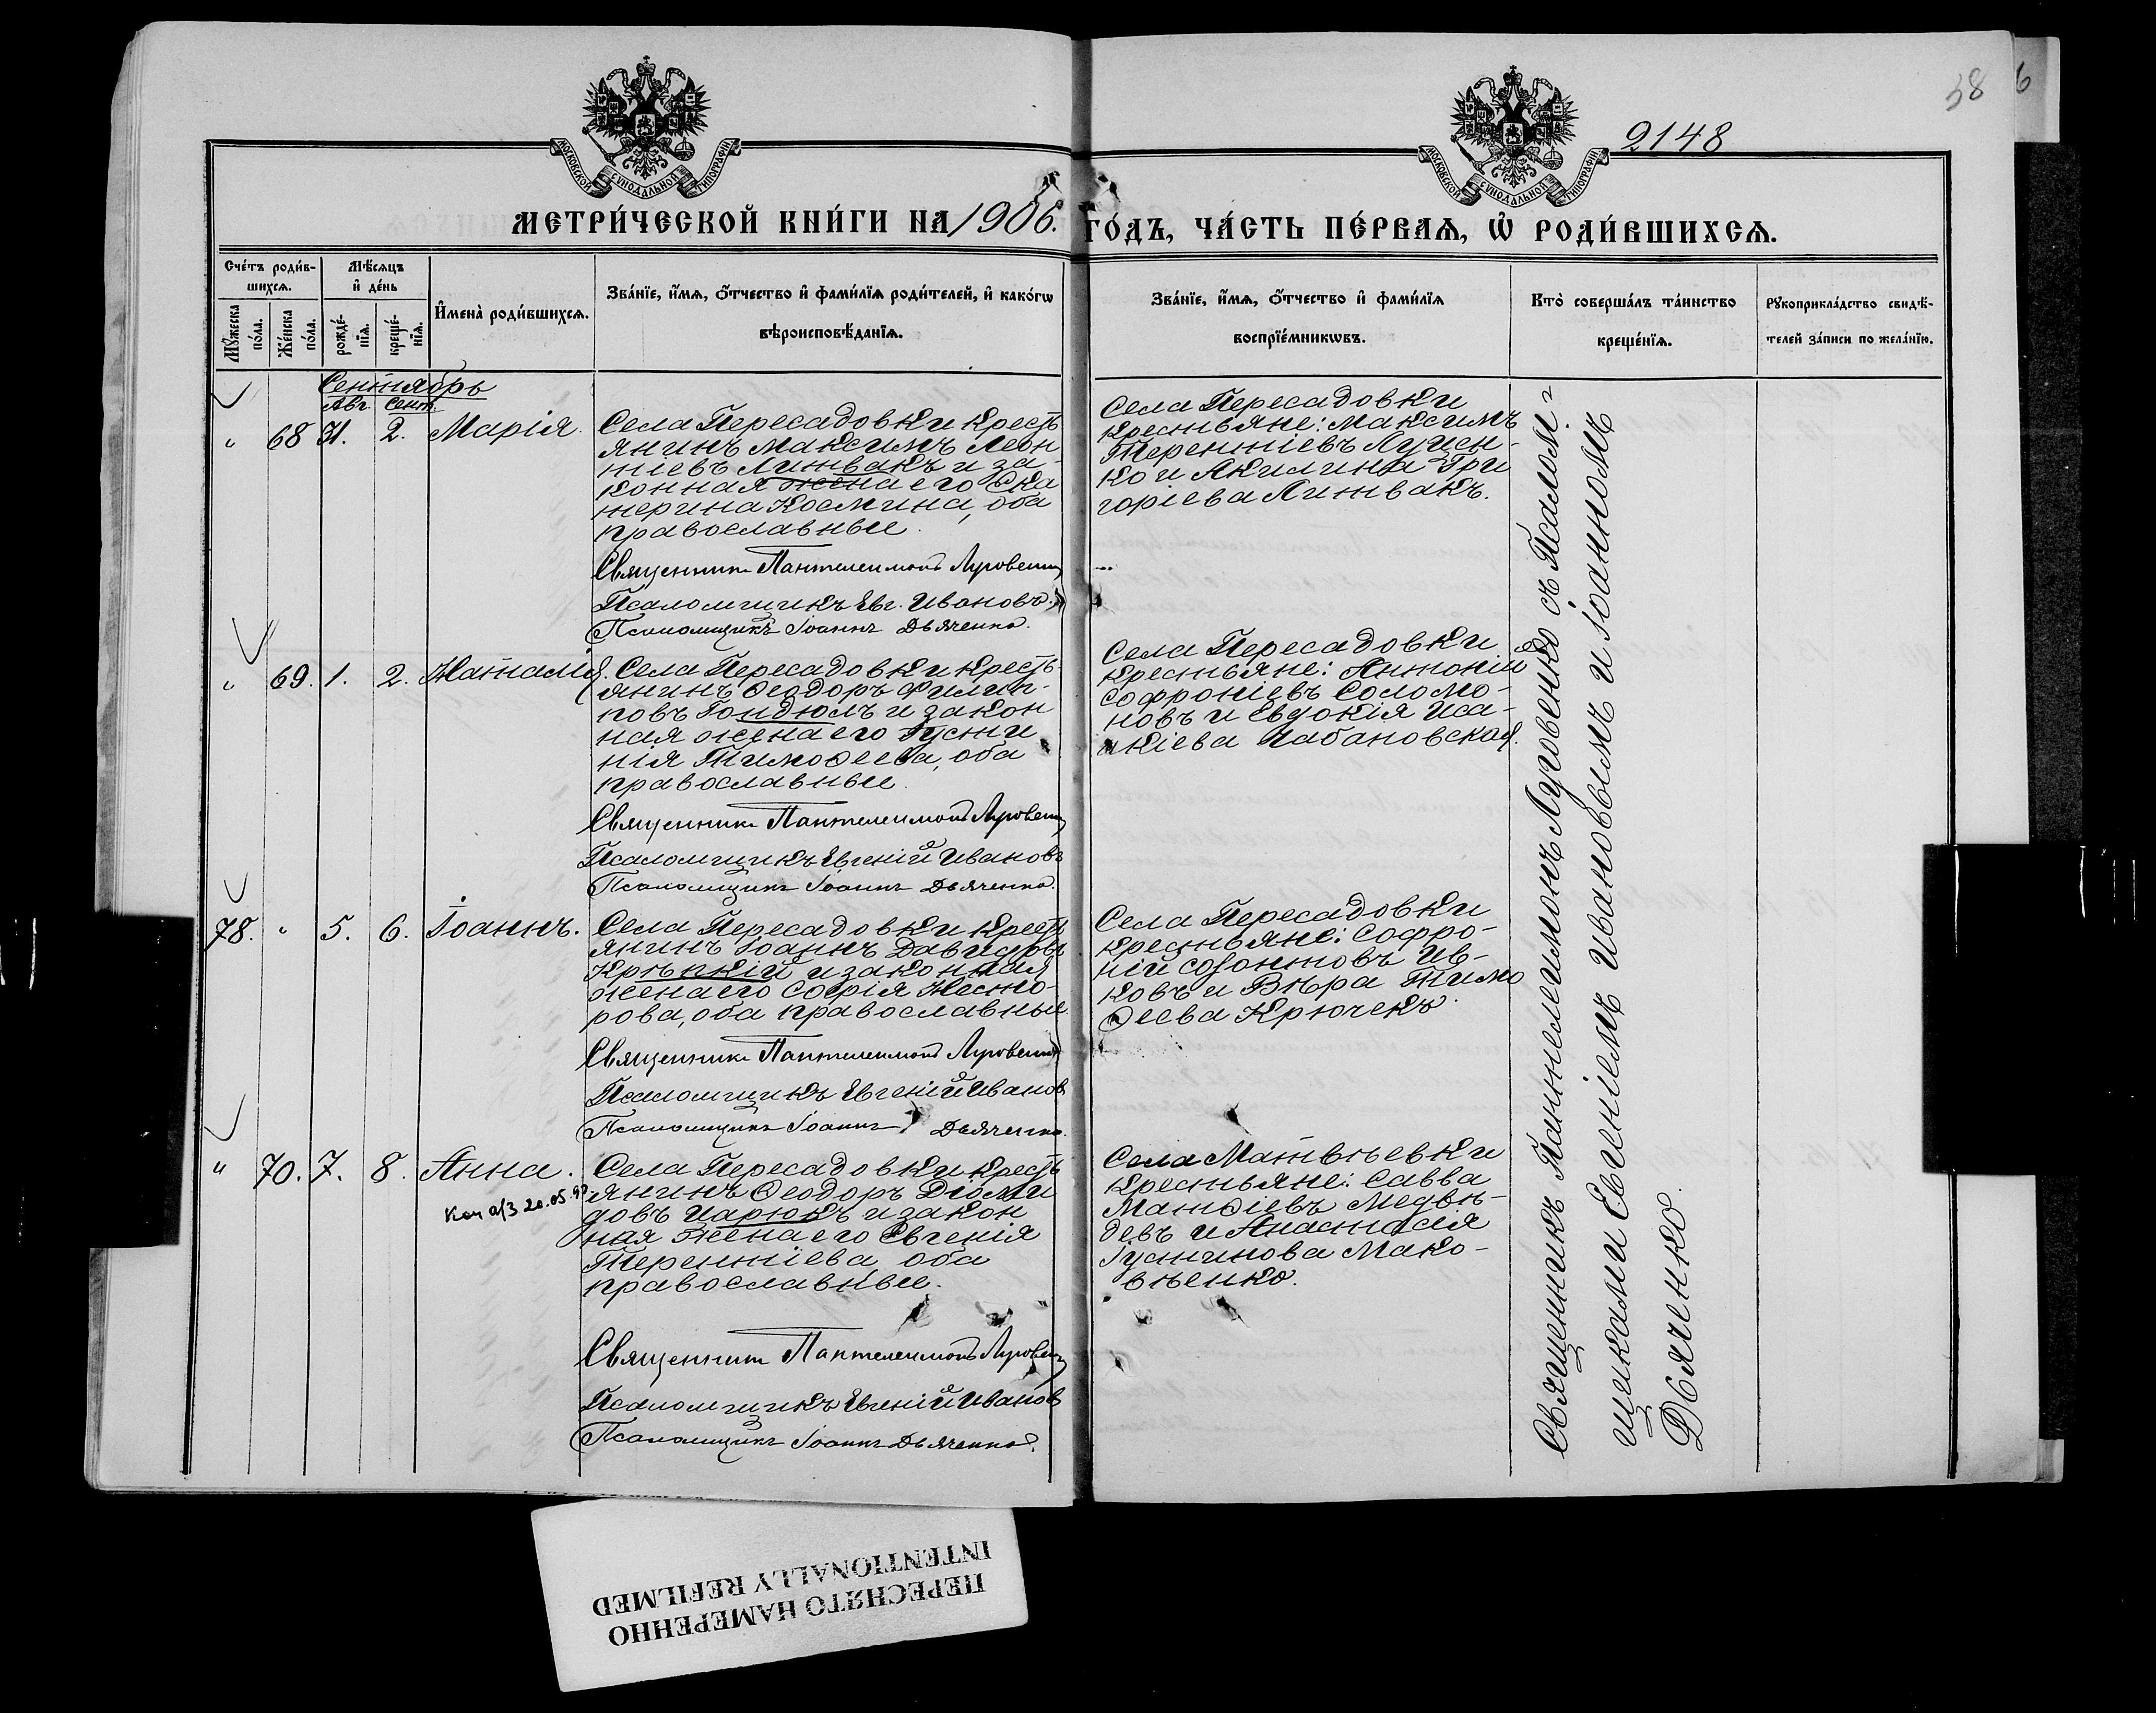 38
6
2148
МОСКОВСКОЙ СѴНОДАЛЬНОЙ ТИПОГРАФІИ
МОСКОВСКОЙ СѴНОДАЛЬНОЙ ТИПОГРАФІИ
МЕТРИ́ЧЕСКОЙ КНИ́ГИ НА 1906. ГО́ДЪ, ЧА́СТЬ ПЕ́РВАѦ, Ѡ҆ РОДИ́ВШИХСѦ.
Сче́тъ роди́в-
шихсѧ.
Мꙋ́жеска по́ла.
Же́нска по́ла.
Мѣ́сѧцъ
и҆ де́нь
рожде́-
нїѧ.
креще́-
нїѧ.
И҆мена̀ роди́вшихсѧ.
Зва́нїе, и҆́мѧ, ѻ҆́тчество и҆ фами́лїѧ роди́телей, и҆ како́гѡ
вѣроисповѣ́данїѧ.
Зва́нїе, и҆́мѧ, ѻ҆́тчество и҆ фами́лїѧ
воспрїе́мникѡвъ.
Кто̀ соверша́лъ та́инство
креще́нїѧ.
Рꙋкоприкла́дство свидѣ́-
телей за́писи по жела́нїю.
Сентябрь
Авг. Сент.
" 68 31. 2. Марія.
Села Пересадовки кресть
янинъ Максимъ Леон
тіевъ Литвакъ и за-
конная жена его Ека
терина Космина, оба
православные.
Священникъ Пантелеимонъ Луговенко
Псаломщикъ Евг. Ивановъ.
Псаломщикъ Іоаннъ Дьяченко.
Села Пересадовки
крестьяне: Максимъ
Терентіевъ Луцен-
ко и Акилина Гри
горіева Литвакъ.
" 69. 1. 2. Наталія.
Села Пересадовки кресть
янинъ Ѳеодоръ Филип-
повъ Гондюлъ и закон
ная жена его Іусти
нія Тимоѳеева, оба
православные.
Священникъ Пантелеимонъ Луговенко
Псаломщикъ Евгеній Ивановъ
Псаломщикъ Іоаннъ Дьяченко.
Села Пересадовки
крестьяне: Антоній
Софроніевъ Соломо-
новъ и Евдокія Иса-
акіева Чабановская.
78. " 5. 6. Іоаннъ.
Села Пересадовки кресть
янинъ Іоаннъ Давидовъ
Крѣпкій и законная
жена его Софія Несто-
рова, оба православные.
Священникъ Пантелеимонъ Луговенко
Псаломщикъ Евгеній Ивановъ
Псаломщикъ Іоаннъ Дьяченко.
Села Пересадовки
крестьяне: Софро-
ній Созонтовъ Ив-
ковъ и Вѣра Тимо
ѳеева Крючекъ.
" 70. 7. 8. Анна.
Села Пересадовки кресть
янинъ Ѳеодоръ Діоми
довъ Царюкъ и закон
ная жена его Евгенія
Терентіева, оба
православные.
Священникъ Пантелеимонъ Луговенко
Псаломщикъ Евгеній Ивановъ
Псаломщикъ Іоаннъ Дьяченко.
Села Матвѣевки
крестьяне: Савва
Матѳіевъ Медвѣ-
девъ и Анастасія
Іустинова Мако-
вѣенко.
а/з 20.05.
Священникъ Пантелеимонъ Луговенко съ Псалом-
щиками Евгеніемъ Ивановымъ и Іоанномъ
Дьяченко.
ПЕРЕСНЯТО НАМЕРЕННО
INTENTIONALLY REFILMED